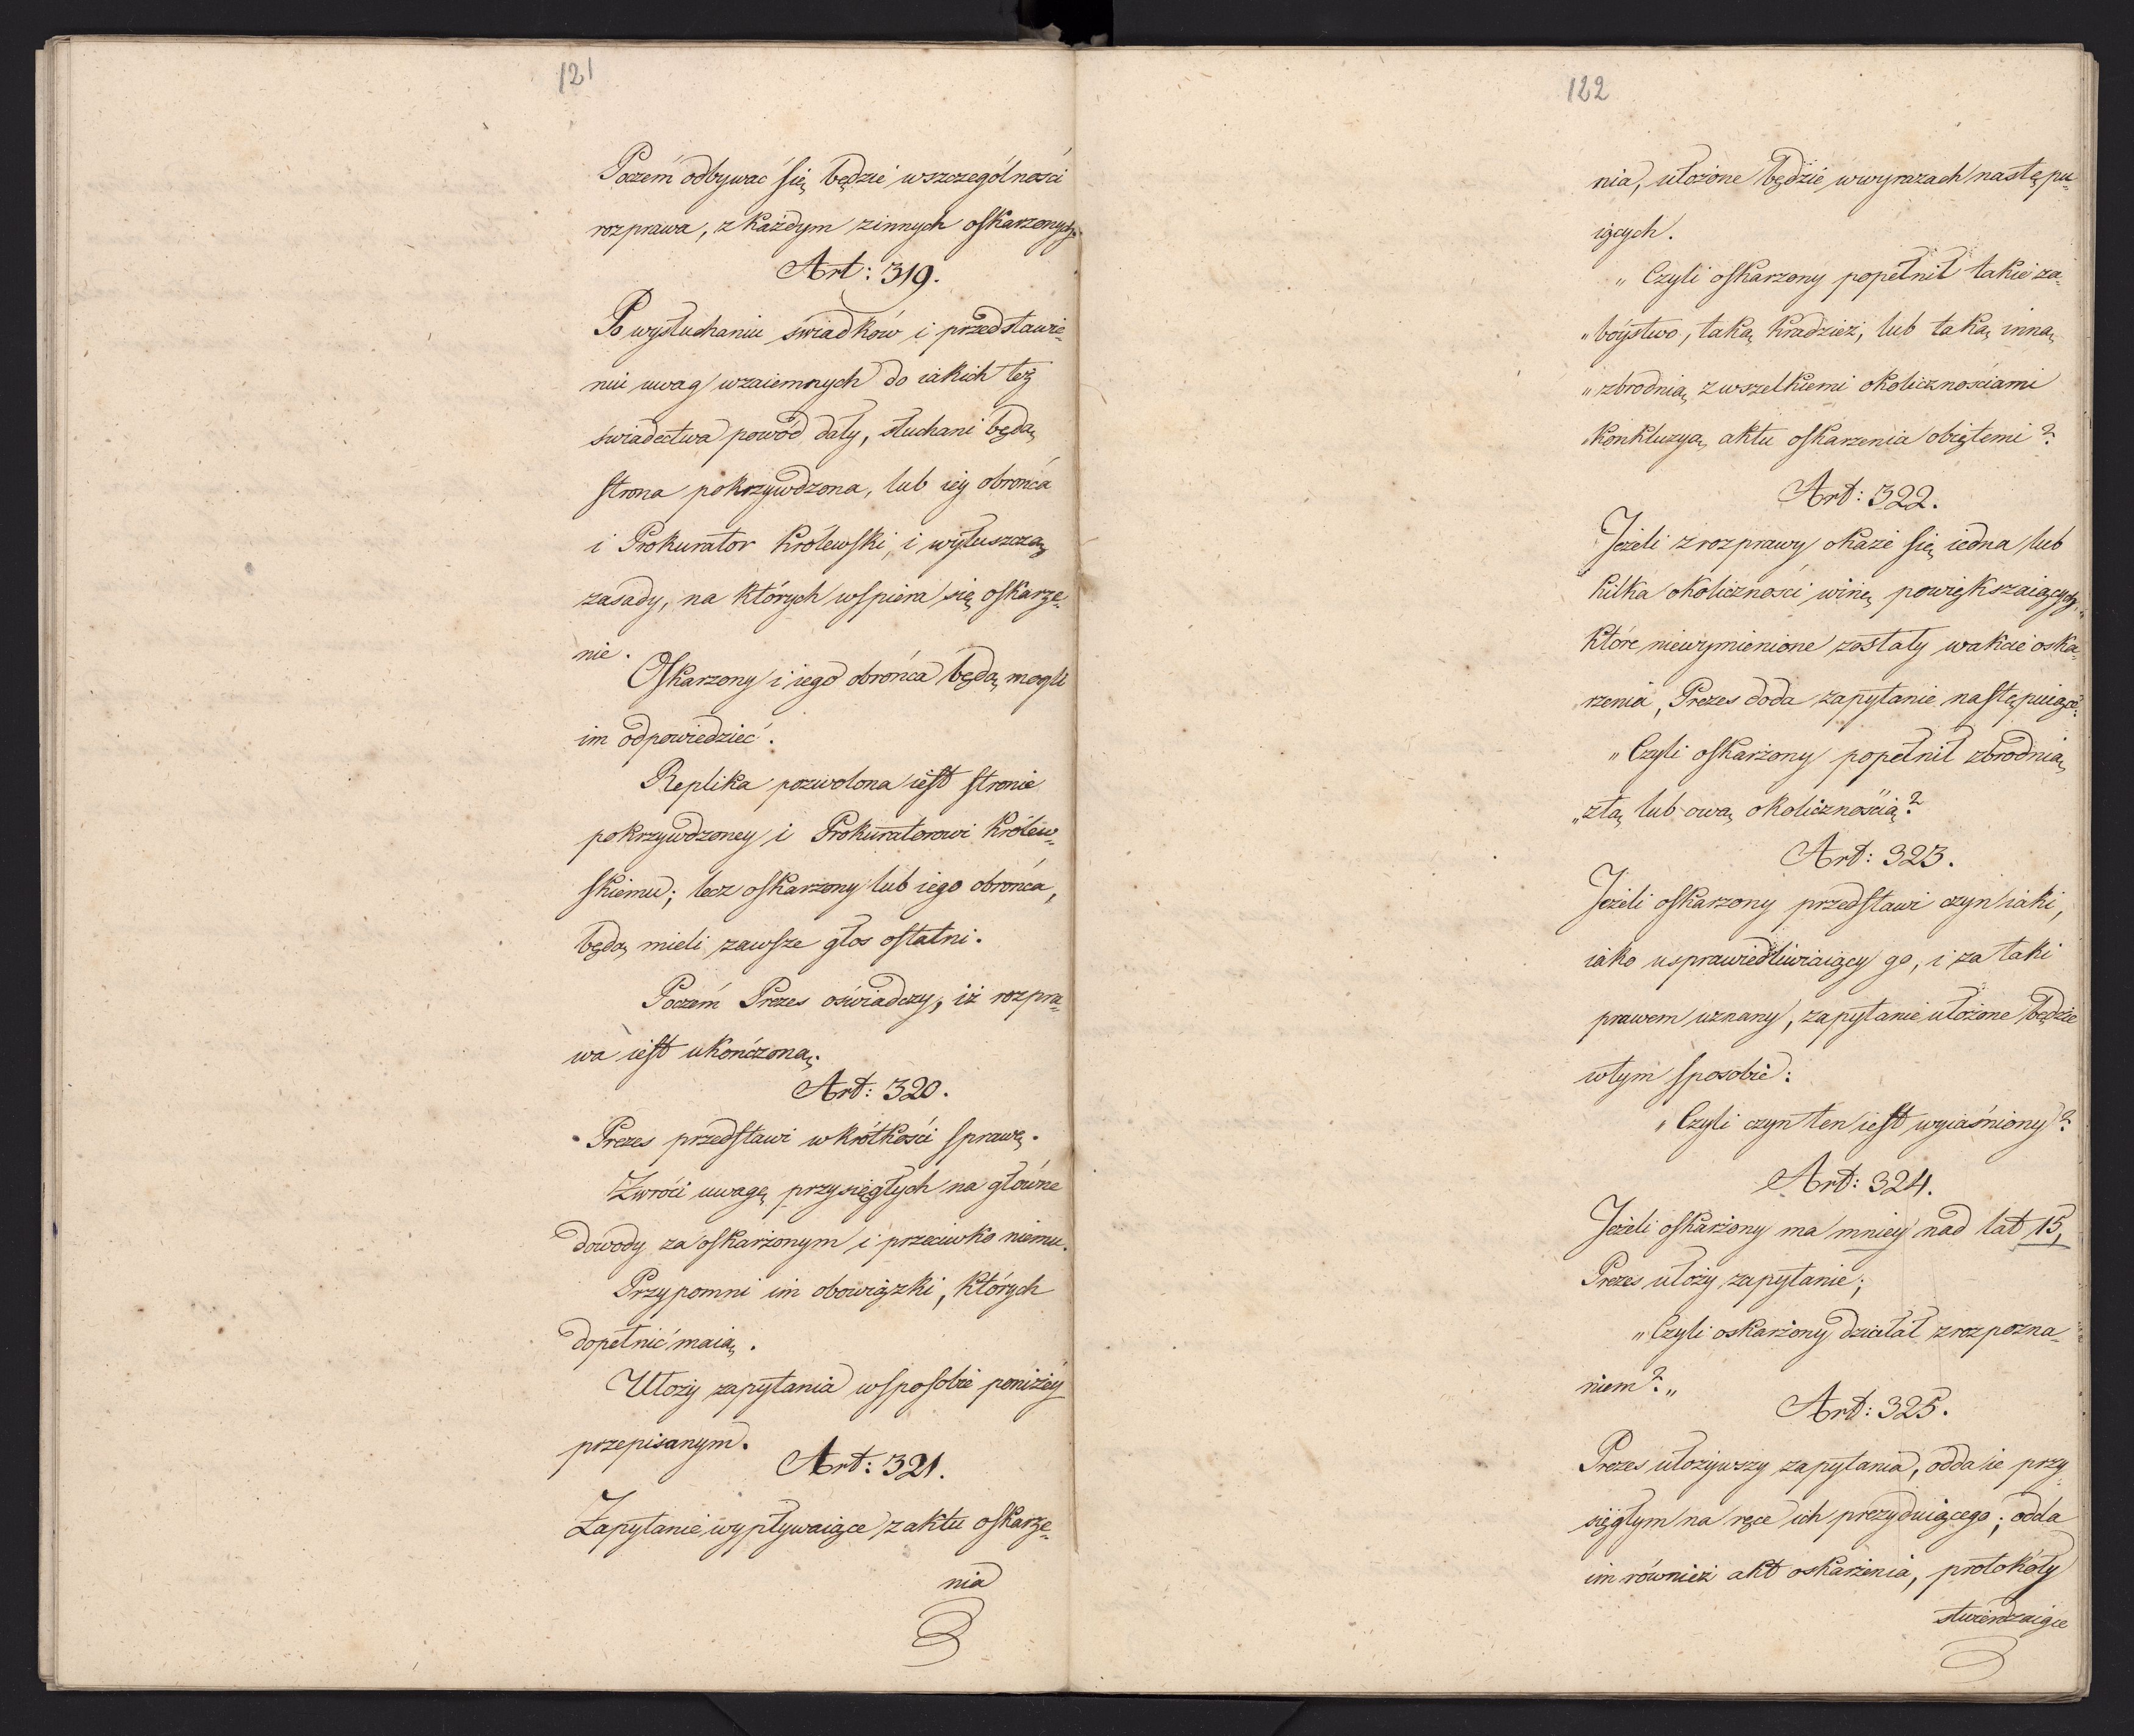 121
Poczem odbywać się będzie wszczególności
rozprawa, z każdym zinnych oskarzonych.
Art: 319.
Po wysłuchaniu świadków i przedstawie„
niu uwag wzaiemnych do iakich też
świadectwa powód dały, słuchani będą
strona pokrzywdzona, lub iey obrońca
i Prokurator Królewski, i wyłuszczą
zasady, na których wspiera się oskarże„
nie.
Oskarzony i iego obrońca będą mogli
im odpowiedzieć.
Replika pozwolona iest stronie
pokrzywdzoney i Prokuratorowi Królew„
skiemu; lecz oskarzony lub iego obrońca,
będą mieli zawsze głos ostatni.
Poczem Prezes oświadczy, iż rozpra„
wa iest ukończoną.
Art: 320.
Prezes przedstawi wkrótkości sprawę.
Zwróci uwagę przysięgłych na główne
dowody za oskarżonym i przeciwko niemu.
Przypomni im obowiązki, których
dopełnić maią.
Ułoży zapytania wsposobie poniżéy
przepisanym.
Art: 321.
Zapytanie wypływaiące z aktu oskarże„
nia
122
nia, ułożone będzie wwyrazach następu„
iących.
„Czyli oskarzony popełnił takie za„
„bóystwo, taką kradzież, lub taką inną
„zbrodnią z wszelkiemi okolicznościami
„konkluzyą aktu oskarzenia obiętemi?
Art: 322.
Jeżeli z rozprawy okaże się iedna lub
kilka okoliczności winę powiększaiących,
które niewymienione zostały wakcie oska„
rzenia, Prezes doda zapytanie następuiące:
„Czyli oskarżony popełnił zbrodnią
„ztą lub ową okolicznością?
Art: 323.
Jeżeli oskarzony przedstawi czyn iaki,
iako usprawiedliwiaiący go, i za taki
prawem uznany, zapytanie ułożone będzie
wtym sposobie:
„Czyli czyn ten iest wyiaśniony?
Art: 324.
Jeżeli oskarżony ma mniey nad lat 15,
Prezes ułoży zapytanie;
„Czyli oskarżony działał z rozpozna„
niem?„
Art: 325.
Prezes ułożywszy zapytania, odda ie przy„
sięgłym na ręce ich prezyduiącego; odda
im również akt oskarżenia, protokóły
stwierdzaiące